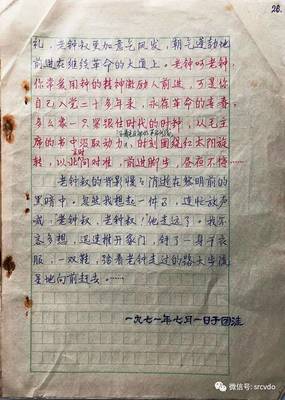 28.
礼，老钟叔更加意气风发，朝气蓬勃地
前进在继续革命的大道上。老钟呀老钟，
你常爱用钟的精神激励人前进，可是你
自己入党三十多年来，永葆革命的青春，
多么象一只紧跟时代的时钟，从毛主
席的书中汲取动力，时刻围绕红太阳旋
转，以北京对准，前进脚步，昼夜不停……
老钟叔的背影慢慢消逝在黎明前的
黑暗中，忽然我想起一件了，连忙放声
喊，老钟叔，老钟叔！他走远了。我不
容多想，迅速推开家门，钟了一身子衣
服，一双鞋，踏着老钟走过的路大步流
星地向前赶去。……
一九七一年七月一日于团洼
微信号: srcvdo